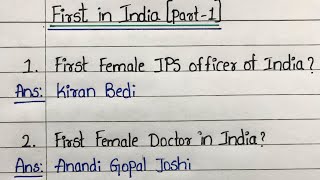 First in India [part-1]
1. First Female IPS officer of India?
Ans: Kiran Bedi
2. First Female Doctor in India?
Ans: Anandi Gopal Joshi